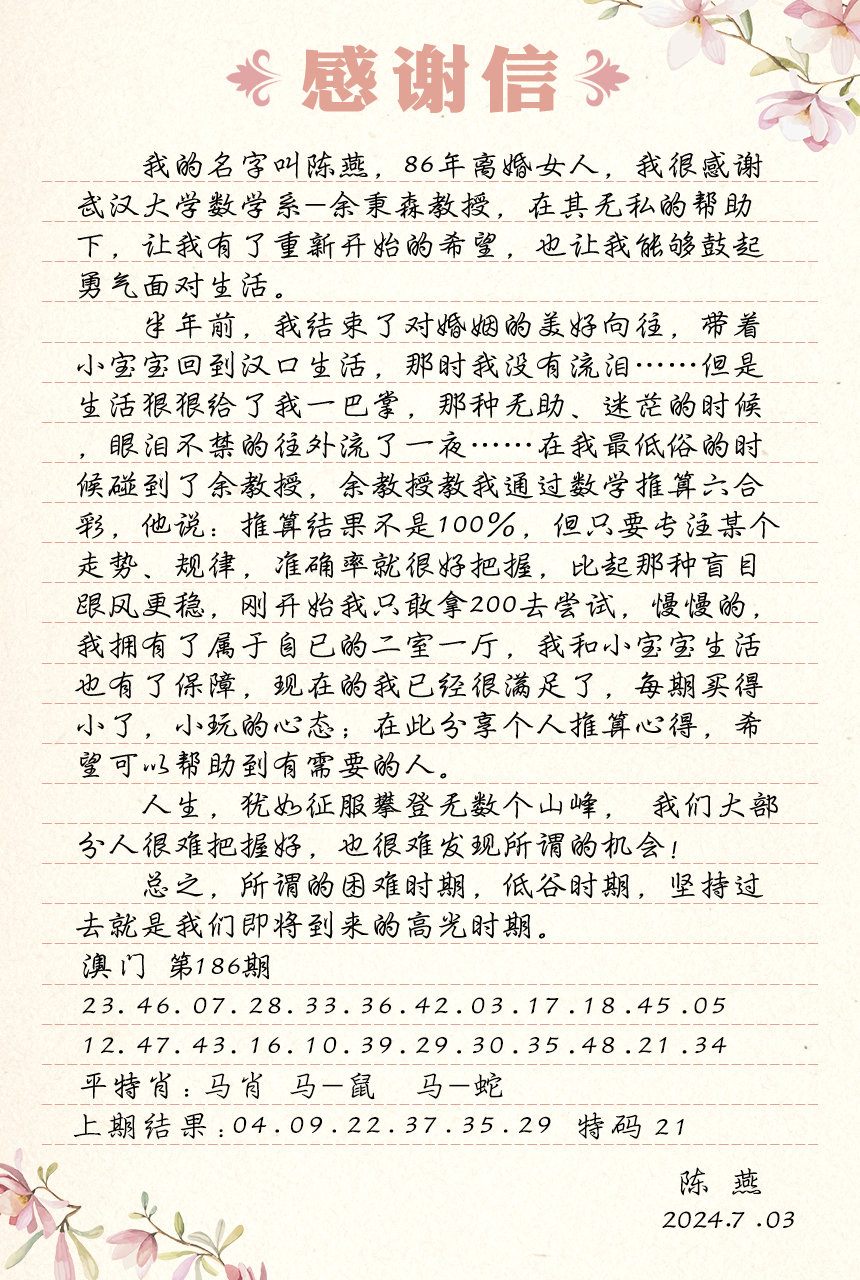 感谢信
我的名字叫陈燕，86年离婚女人，我很感谢
武汉大学数学系—余秉森教授，在其无私的帮助
下，让我有了重新开始的希望，也让我能够鼓起
勇气面对生活。
半年前，我结束了对婚姻的美好向往，带着
小宝宝回到汉口生活，那时我没有流泪……但是
生活狠狠给了我一巴掌，那种无助、迷茫的时候
，眼泪不禁的往外流了一夜……在我最低俗的时
候碰到了余教授，余教授教我通过数学推算六合
彩，他说：推算结果不是100%，但只要专注某个
走势、规律，准确率就很好把握，比起那种盲目
跟风更稳，刚开始我只敢拿200去尝试，慢慢的，
我拥有了属于自已的二室一厅，我和小宝宝生活
也有了保障，现在的我已经很满足了，每期买得
小了，小玩的心态；在此分享个人推算心得，希
望可以帮助到有需要的人。
人生，犹如征服攀登无数个山峰， 我们大部
分人很难把握好，也很难发现所谓的机会！
总之，所谓的困难时期，低谷时期，坚持过
去就是我们即将到来的高光时期。
澳门 第186期
23.46.07.28.33.36.42.03.17.18.45.05
12.47.43.16.10.39.29.30.35.48.21.34
平特肖：马肖 马—鼠 马—蛇
上期结果：04.09.22.37.35.29 特码 21
陈 燕
2024.7.03